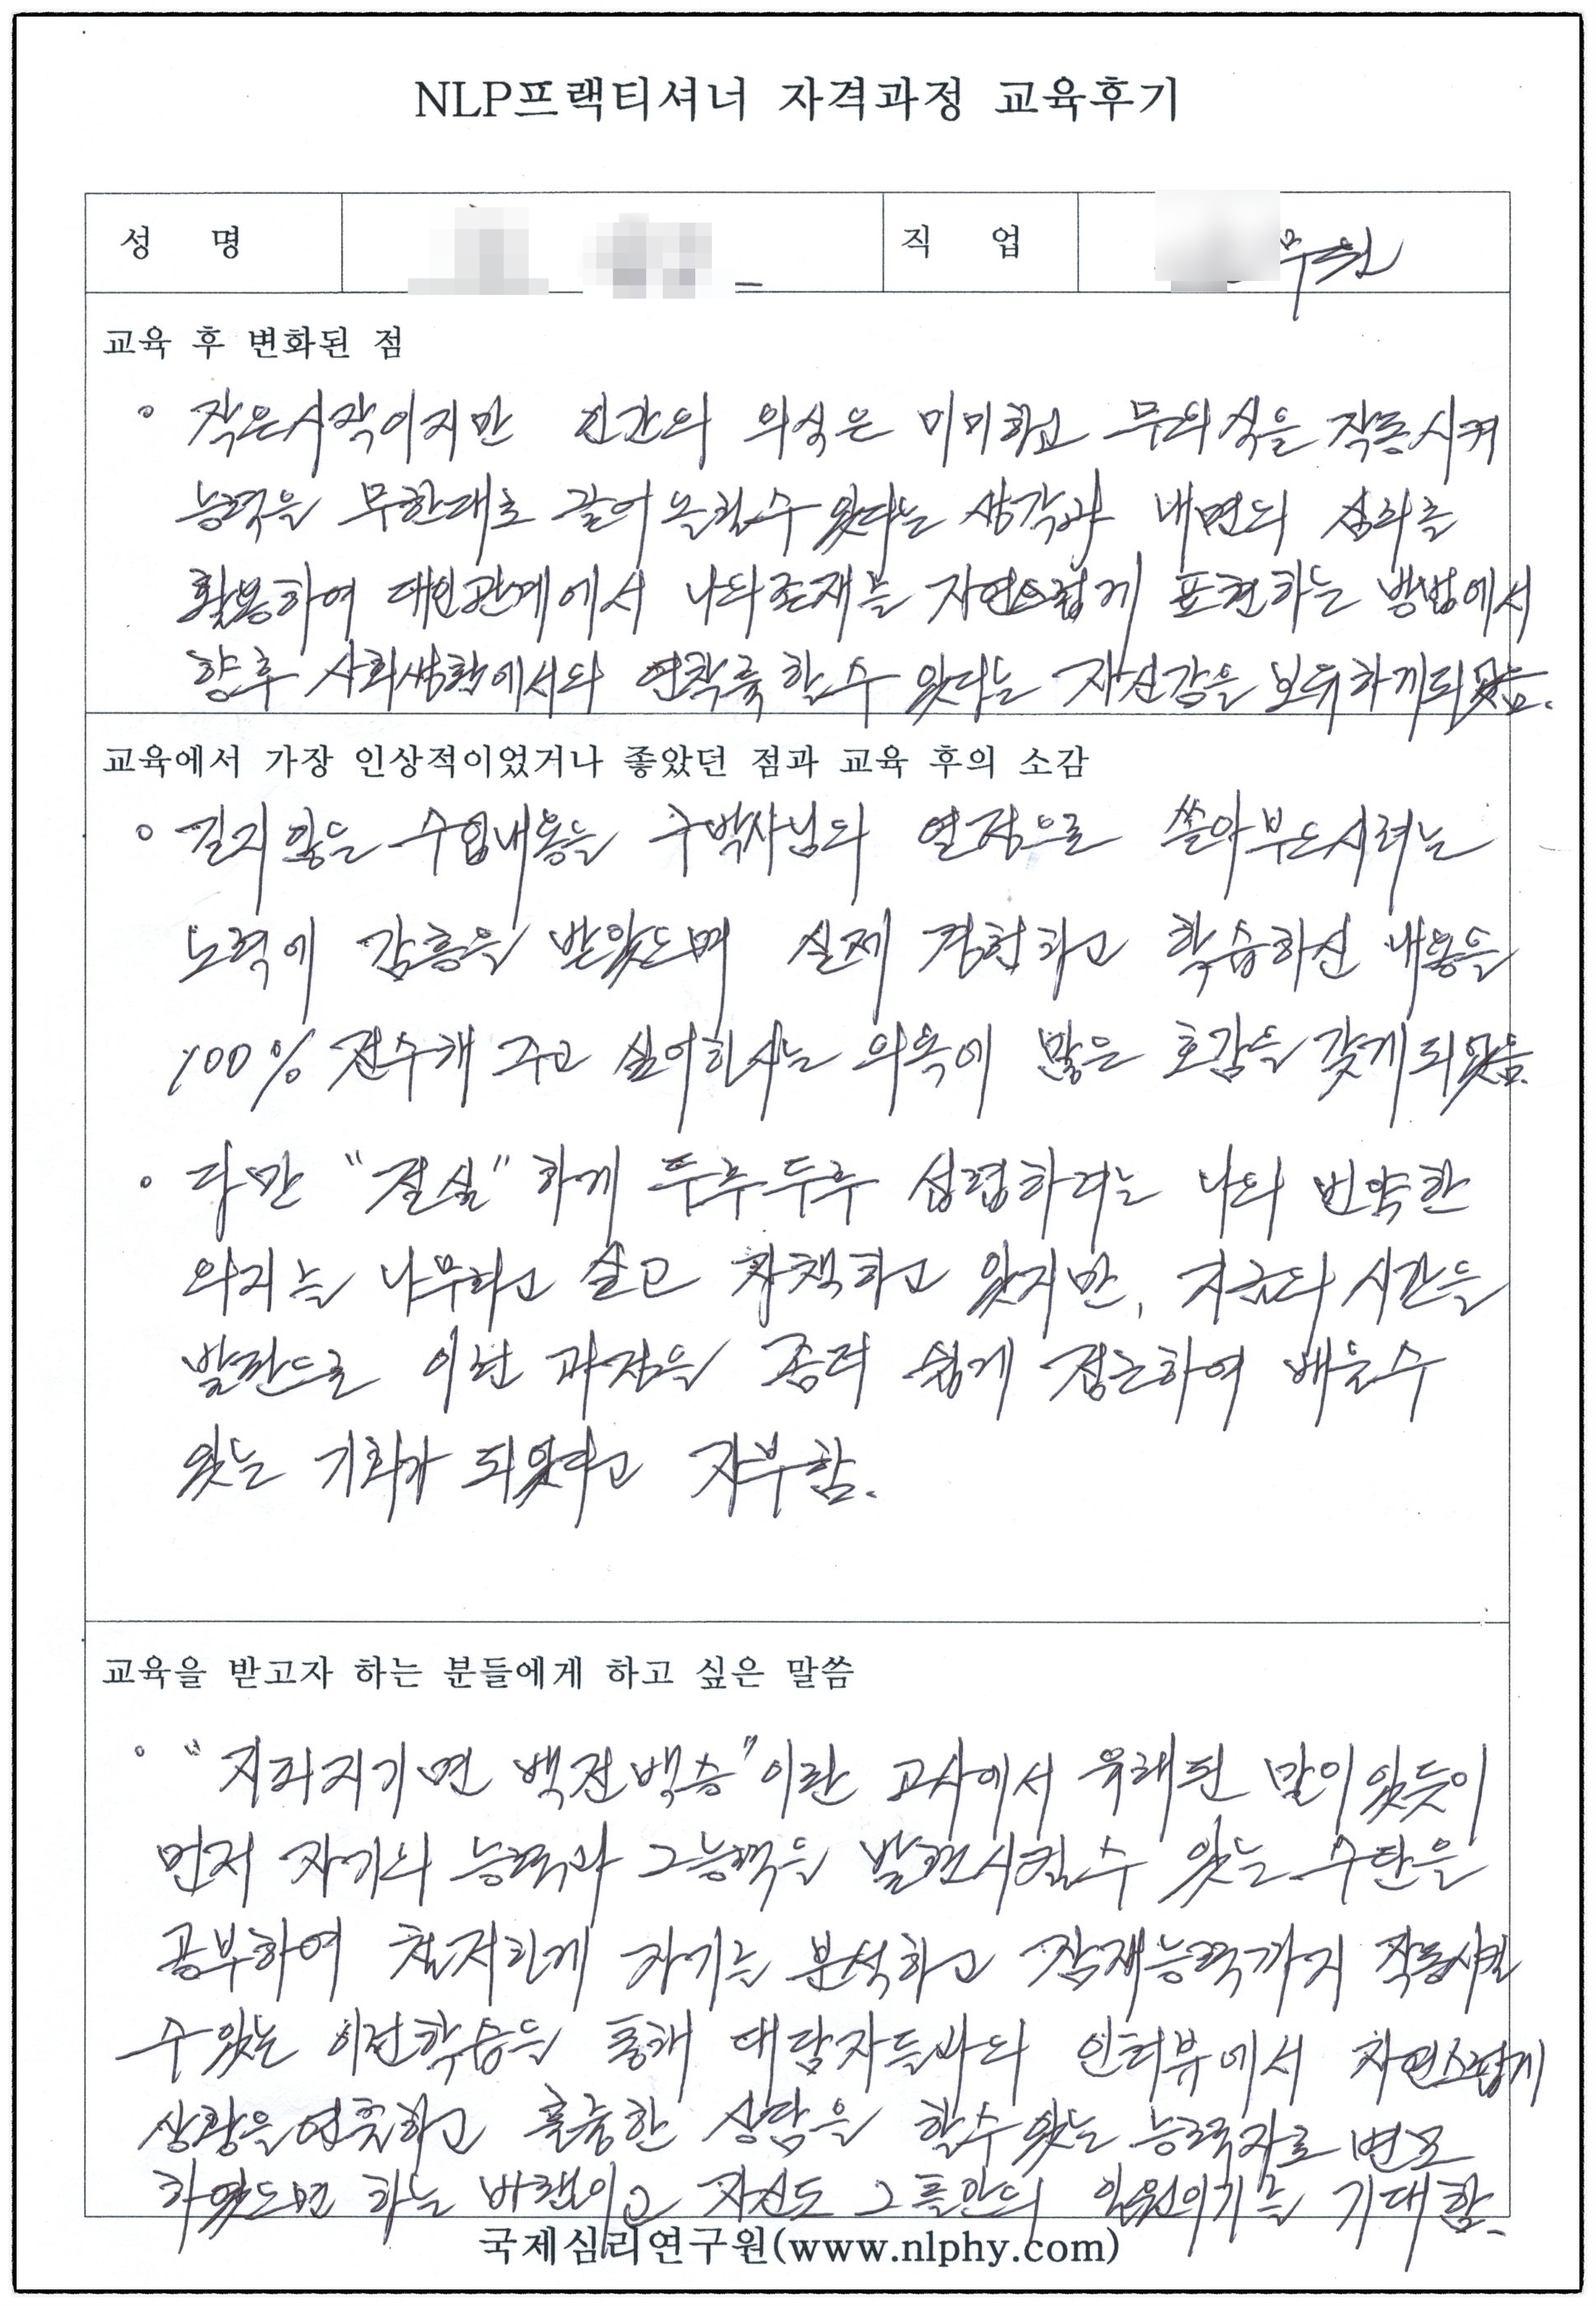 NLP프랙티셔너 자격과정 교육후기
성 명
직 업 무원
교육 후 변화된 점
○ 작은시작이지만 인간의 의식은 미미하고 무의식을 작동시켜
능력을 무한대로 끌어 올릴수 있다는 생각과 내면의 심리를
활용하여 대인관계에서 나의존재를 자연스럽게 표현하는 방법에서
향후 사회생활에서의 연착륙 할수 있다는 자신감을 보유하게되었음.
교육에서 가장 인상적이었거나 좋았던 점과 교육 후의 소감
○ 길지않은 수업내용을 구박사님의 열정으로 쏟아부으시려는
노력에 감흥을 받았으며 실제 경험하고 학습하신 내용을
100% 전수해 주고 싶어하시는 의욕에 많은 호감을 갖게되었음.
○ 다만 "절실"하게 두루두루 섭렵하려는 나의 빈약한
의지를 나무라고 싶고 자책하고 있지만, 지금의 시간을
발판으로 이런 과정을 좀더 쉽게 접근하여 배울수
있는 기회가 되었다고 자부함.
교육을 받고자 하는 분들에게 하고 싶은 말씀
○ "지피지기면 백전백승"이란 고사에서 유래된 말이 있듯이
먼저 자기의 능력과 그능력을 발전시킬수 있는 수단을
공부하여 철저하게 자기를 분석하고 잠재능력까지 작동시킬
수있는 이런학습을 통해 대담자들과의 인터뷰에서 자연스럽게
상황을 연출하고 훌륭한 상담을 할수있는 능력자로 변모
하였으면 하는 바램이고 자신도 그 틀안의 일원이기를 기대함.
국제심리연구원(www.nlphy.com)